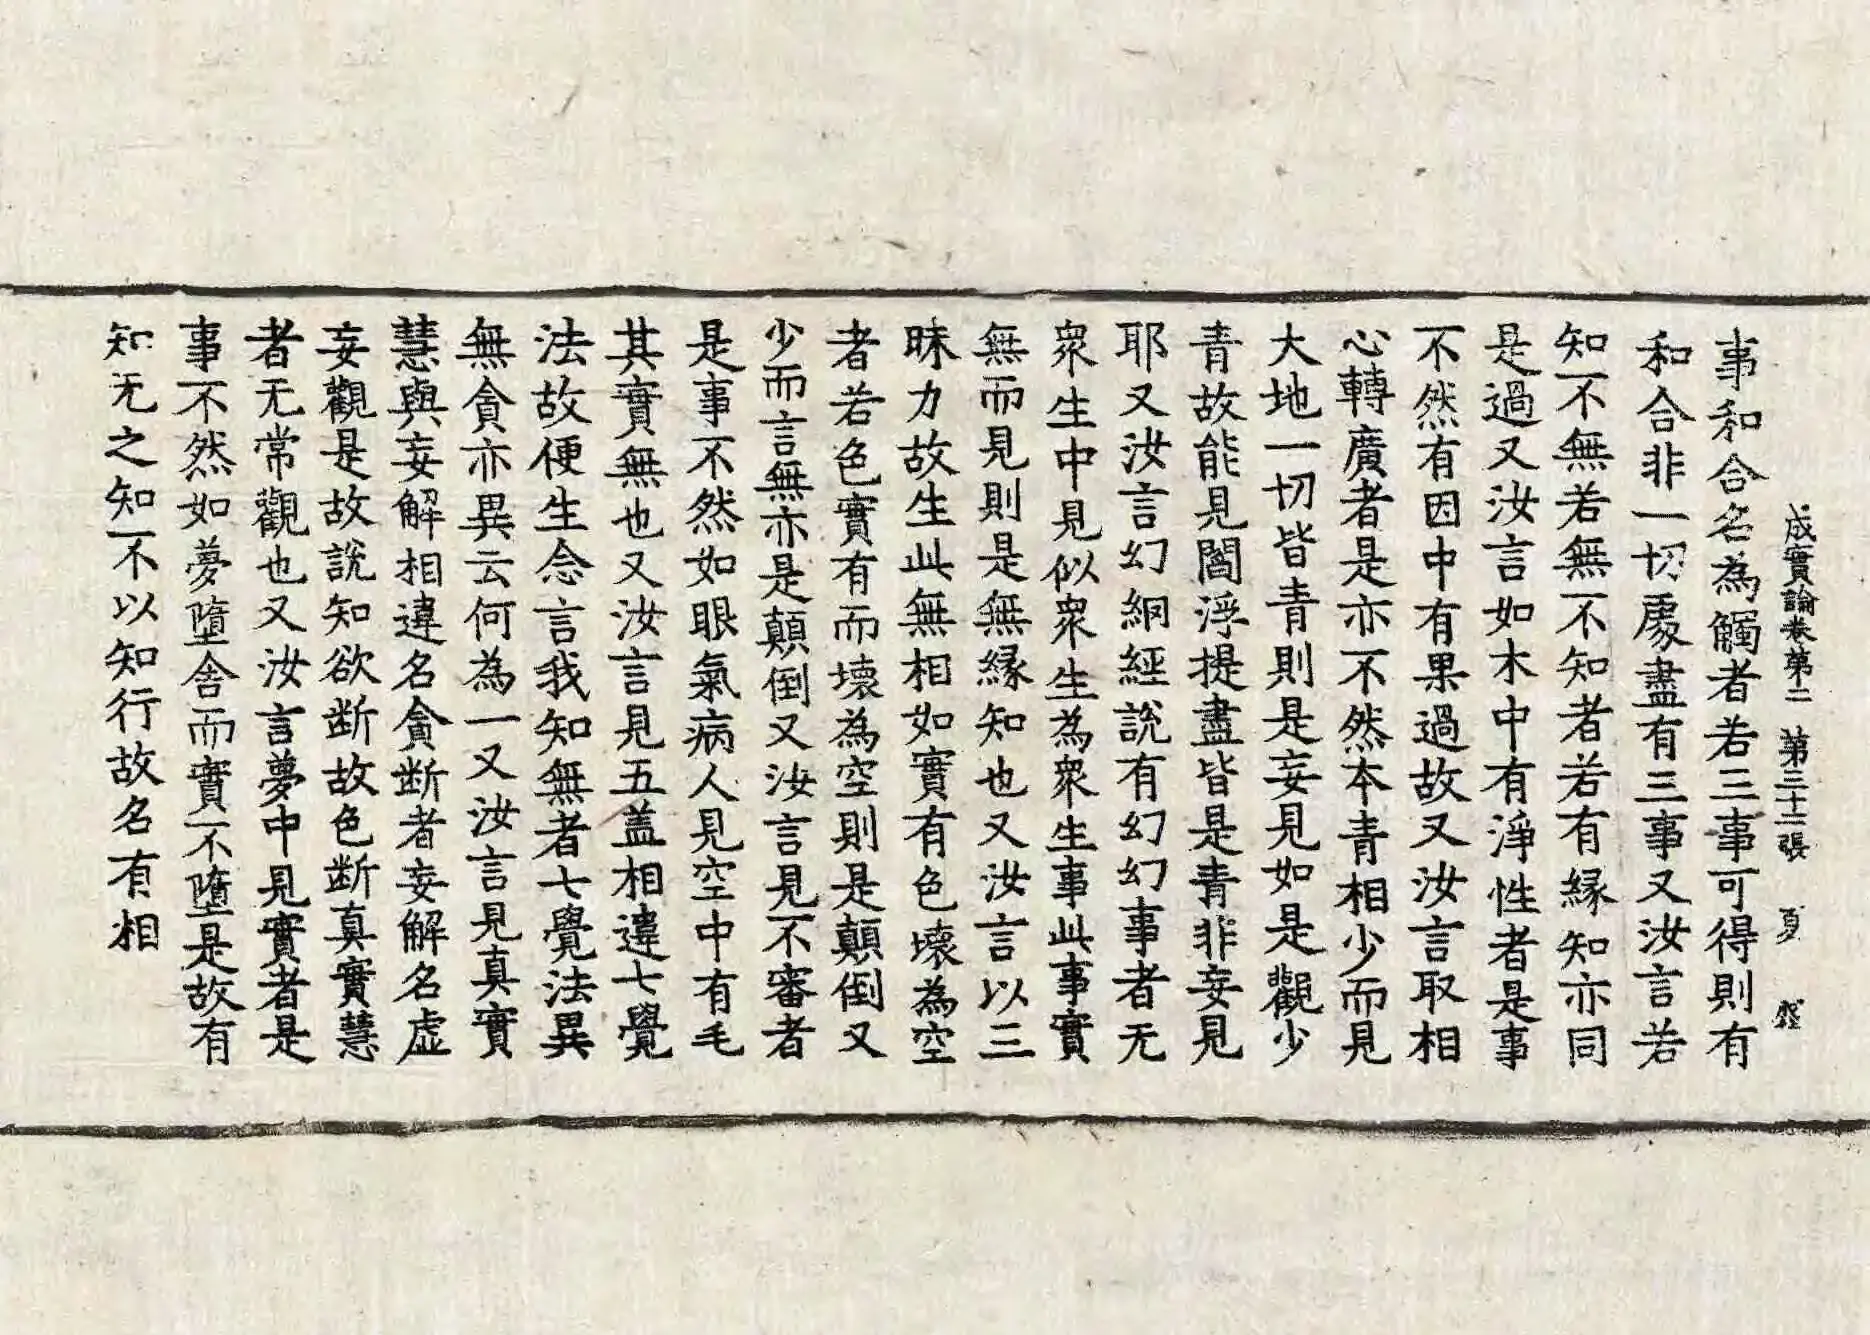 成實論卷第二　第三十二張　夏
事和合名為觸者若三事可得則有
和合非一切處盡有三事又汝言若
知不無若無不知者若有緣知亦同
是過又汝言如木中有淨性者是事
不然有因中有果過故又汝言取相
心轉廣者是亦不然本青相少而見
大地一切皆青則是妄見如是觀少
青故能見閻浮提盡皆是青非妄見
耶又汝言幻網經說有幻幻事者无
衆生中見似衆生為衆生事此事實
無而見則是無緣知也又汝言以三
昧力故生此無相如實有色壞為空
者若色實有而壞為空則是顛倒又
少而言無亦是顛倒又汝言見不審者
是事不然如眼氣病人見空中有毛
其實無也又汝言見五盖相違七覺
法故便生念言我知無者七覺法異
無貪亦異云何為一又汝言見真實
慧與妄解相違名貪断者妄解名虛
妄觀是故說知欲断故色断真實慧
者无常觀也又汝言夢中見實者是
事不然如夢墮舍而實不墮是故有
知无之知不以知行故名有相